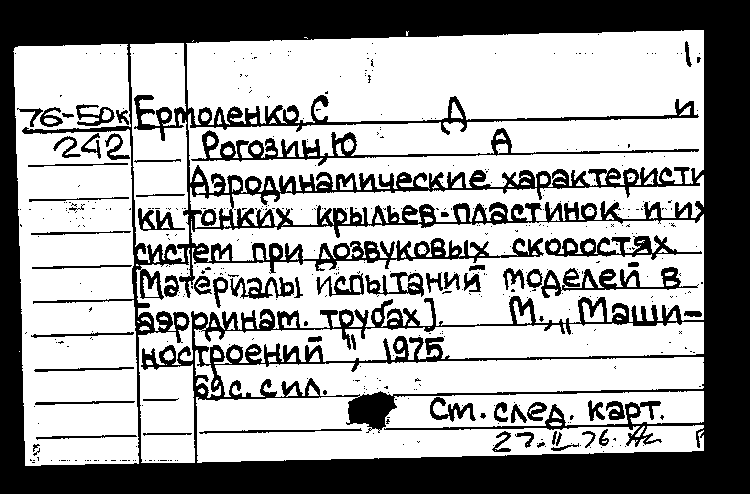 1.
76-5ок Ермоленко, С Д и
242 Рогозин, Ю А
Аэродинамические характеристи
ки тонких крыльев-пластинок и их
систем при дозвуковых скоростях.
[Материалы испытаний моделей в
аэродинам. трубах]. М., „Маши-
ностроений", 1975.
69 с. с ил.
См. след. карт.
27.II.76.